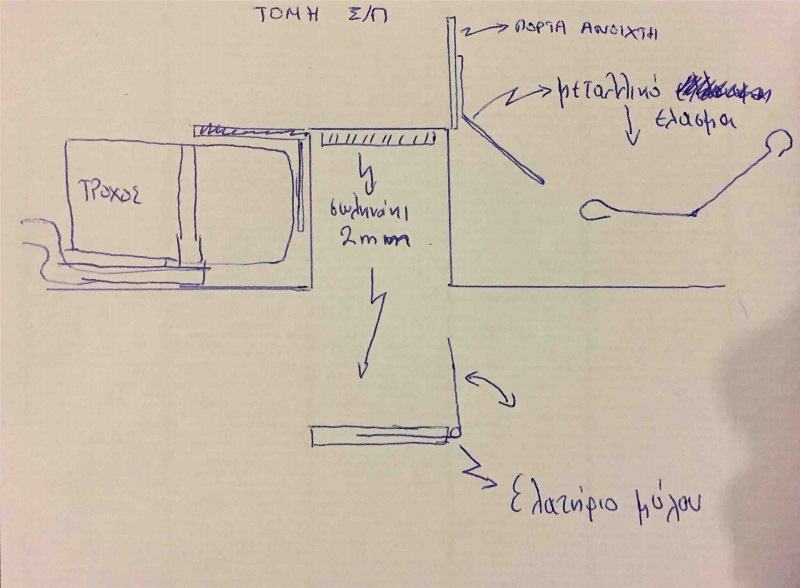 ΤΟΜΗ Σ/Π
ΠΟΡΤΑ ΑΝΟΙΧΤΗ
μεταλλικό
έλασμα
ΤΡΟΧΟΣ
σωληνάκι
2mm
Ελατήριο μύλου